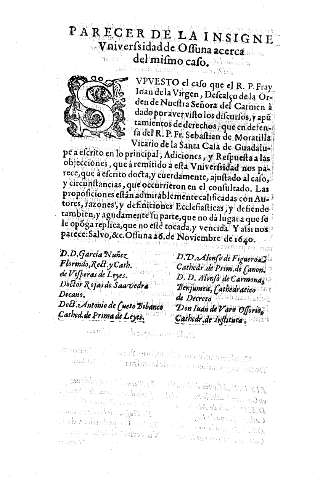 PARECER DE LA INSIGNE
Vniversidad de Ossuna acerca
del mismo caso.
SVPVESTO el caso que el R. P. Fray
Ioan de la Virgen, Descalço de la Or-
den de Nuestra Señora del Carmen à
dado por aver visto los discursos, y apũ
tamientos de derechos, que en defen-
sa del R. P. Fr. Sebastian de Moratilla
Vicario de la Santa Casa de Guadalu-
pe a escrito en lo principal, Adiciones, y Respuesta a las
objecciones, que à remitido a esta Vniversidad nos pa-
rece, que à escrito docta, y cuerdamente, ajustado al caso,
y circunstancias, que occurrieron en el consultado. Las
proposiciones están admirablemente calificadas con Au-
tores, razones, y definiciones Ecclesiasticas, y defiende
tambien, y agudamente su parte, que no dà lugar a que se
le opõga replica, que no esté tocada, y vencida. Y assi nos
parece: Salvo, &c. Ossuna 26. de Noviembre de 1640.
D. D. Garcia Nuñez
Florindo, Rect. y Cath.
de Visperas de Leyes.
Doctor Rojas de Saavedra
Decano.
Do&. Antonio de Cueto Bibanco
Cathed. de Prima de Leyes.
D. D. Alonso de Figueroa
Cathedr. de Prim. de Canon.
D. D. Alonso de Carmona,
Benjumea, Cathedratico
de Decreto
Don Iuan de Varo Ossorio,
Cathedr. de Instituta.